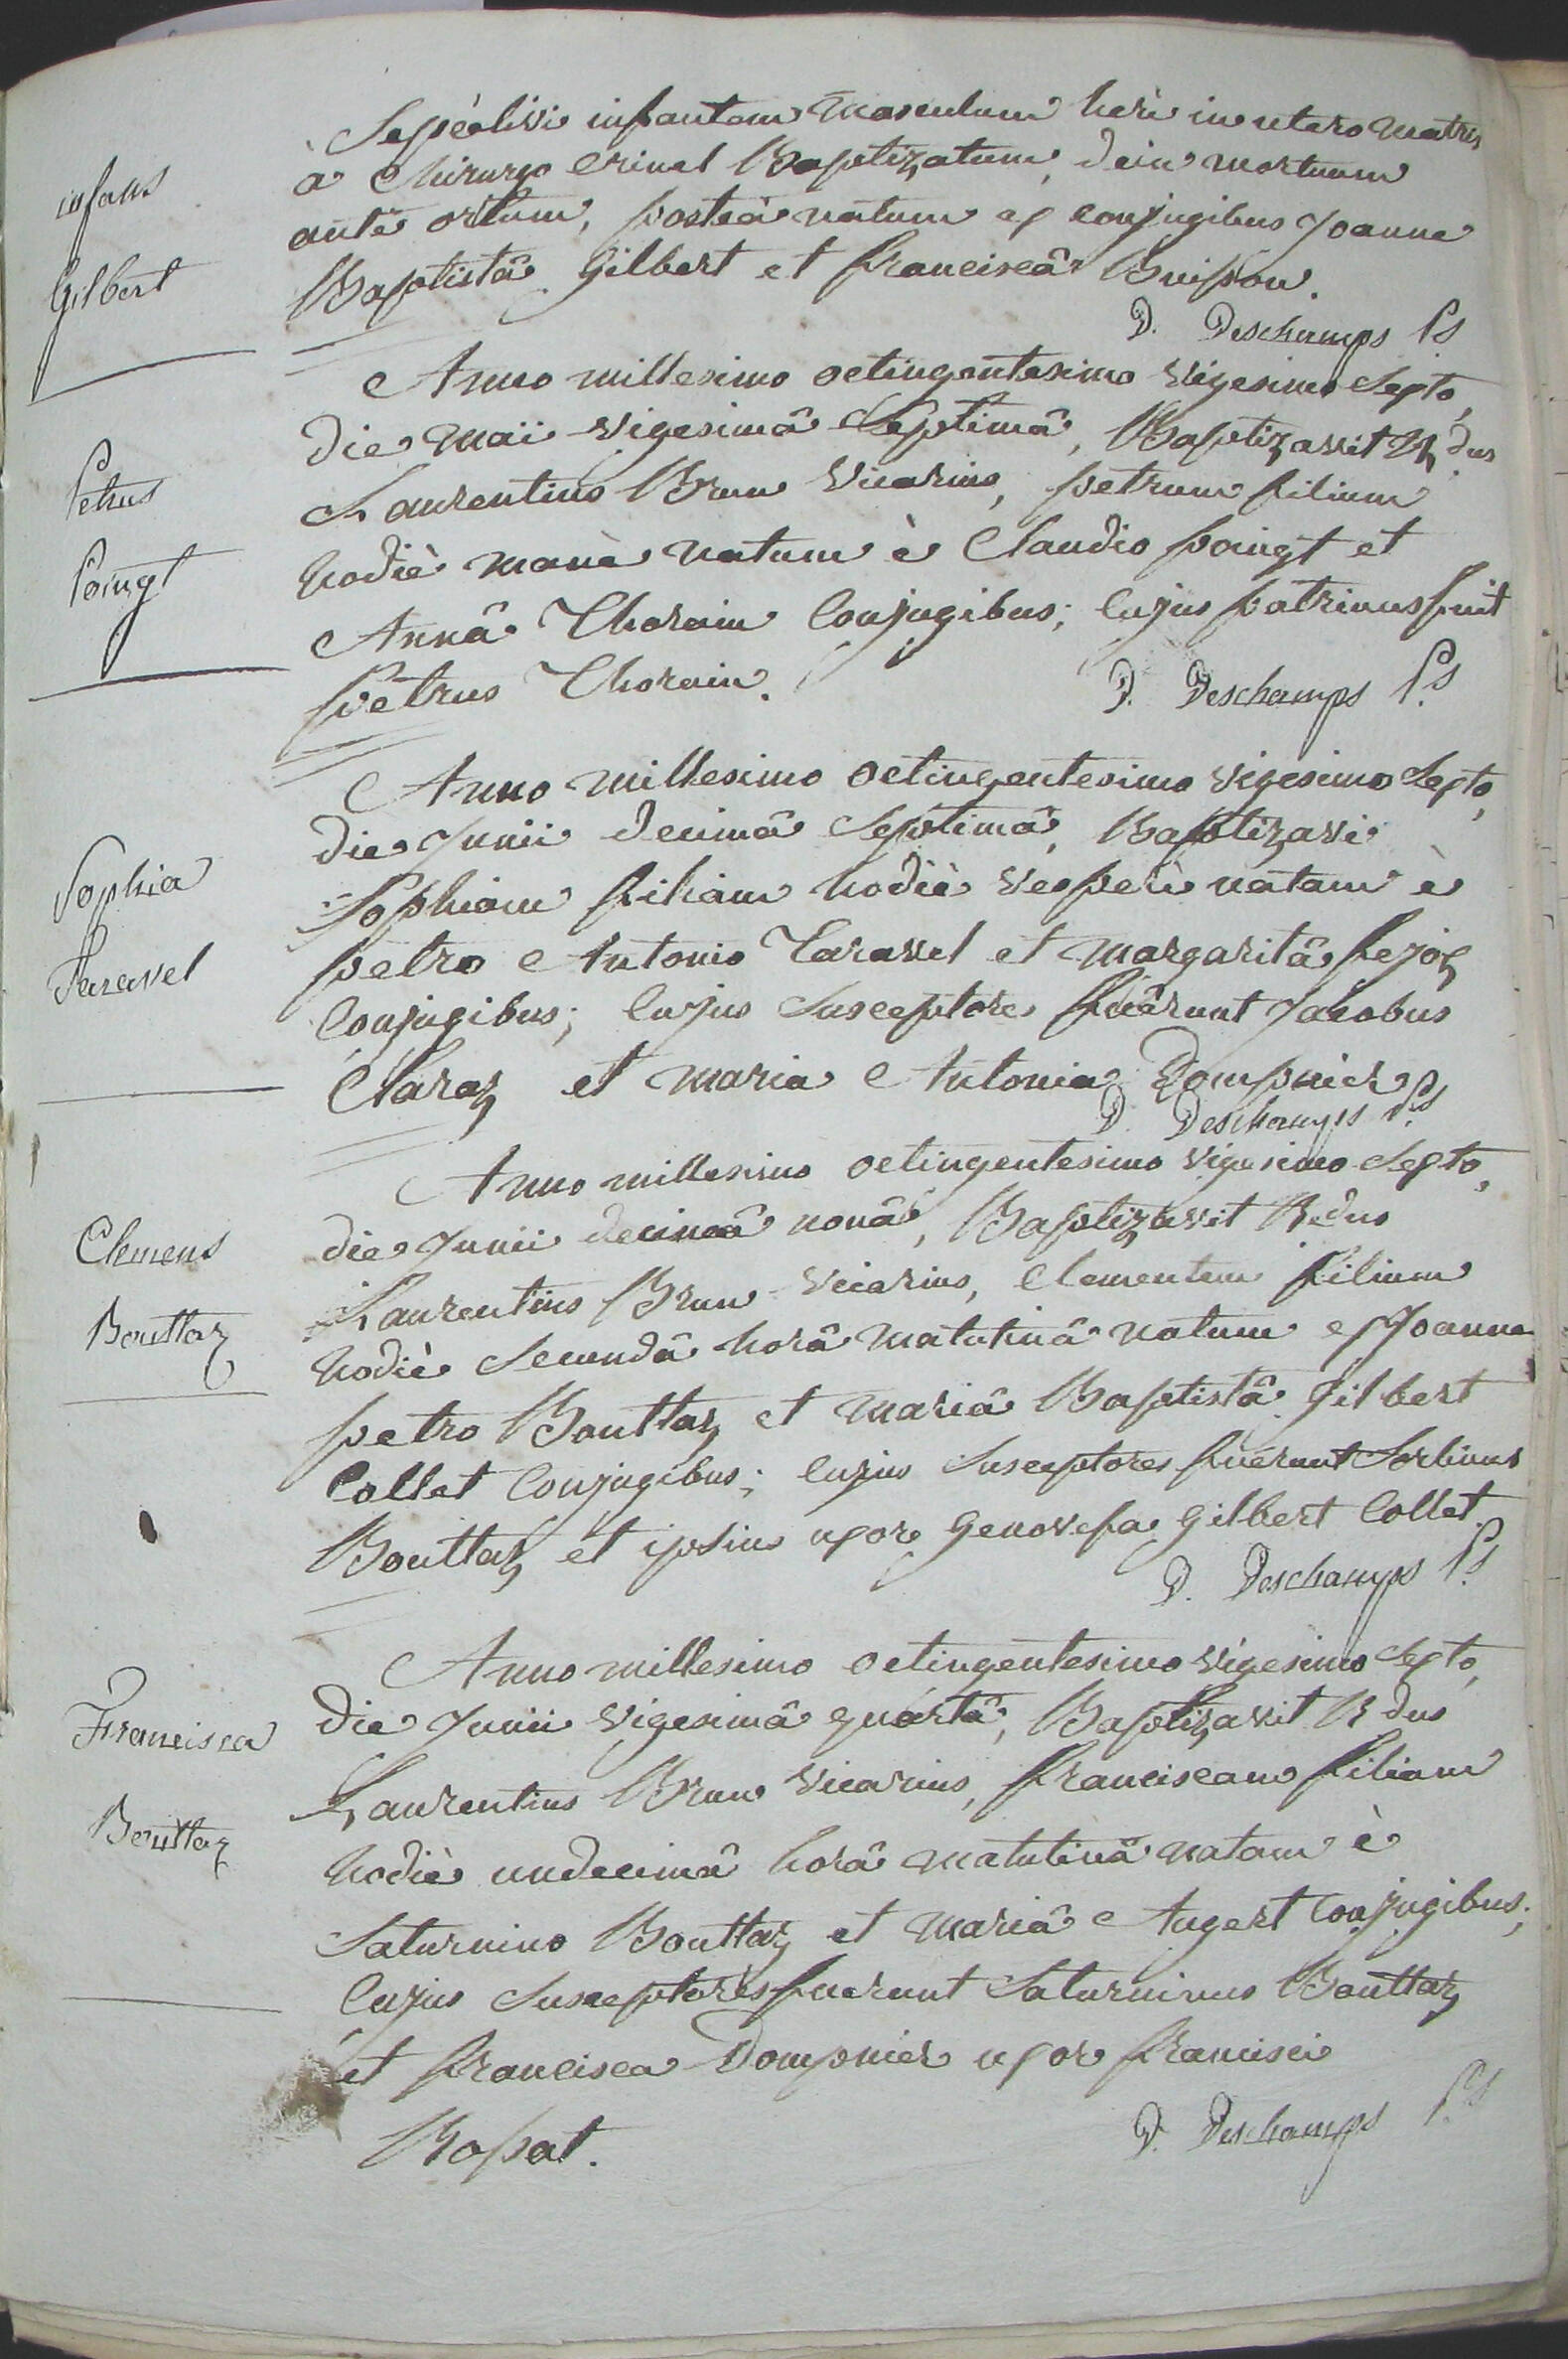 infans
Gilbert
Sepelivi infantem masculum heri in utero matris
à Chirurgo Crinel Baptizatum, dein mortuum
antè ortum, posteà natum ex conjugibus Joanne
Baptistâ Gilbert et franciscâ Buisson.
D. Deschamps P.s
Petrus
Poingt
Anno millesimo octingentesimo vigesimo septo,
die maii vigesimâ septimâ, Baptizavit R.dus
Laurentius Brun vicarius, petrum filium
hodiè manè natum è Claudio poingt et
Annâ Thorain Conjugibus; Cujus patrinus fuit
petrus Thorain.
D. Deschamps P.s
Sophia
Taravel
Anno millesimo octingentesimo vigesimo septo,
die Junii decimâ septimâ, Baptizavi
Sophiam filiam hodiè vesperè natam è
petro Antonio Taravel et margaritâ fejoz
Conjugibus; Cujus susceptores fuêrunt Jacobus
Claraz et maria Antonia Dompnier
D. Deschamps P.s
Clemens
Bouttaz
Anno millesimo octingentesimo vigesimo septo,
die Junii decimâ nonâ, Baptizavit R.dus
Laurentius Brun vicarius, Clementem filium
hodiè secundâ horâ matutinâ natum ex Joanne
petro Bouttaz et mariâ Baptistâ gilbert
Collet Conjugibus; Cujus susceptores fuêrunt Sorlinus
Bouttaz et ipsius uxor genovefa gilbert Collet.
D. Deschamps P.s
Francisca
Bouttaz
Anno millesimo octingentesimo vigesimo septo,
die Junii vigesimâ quartâ, Baptizavit R.dus
Laurentius Brun vicarius, franciscam filiam
hodiè undecimâ horâ matutinâ natam è
Saturnino Bouttaz et mariâ Augert Conjugibus;
Cujus susceptores fuerunt Saturninus Bouttaz
et francisca Dompnier uxor francisci
Rossat.
D. Deschamps P.s